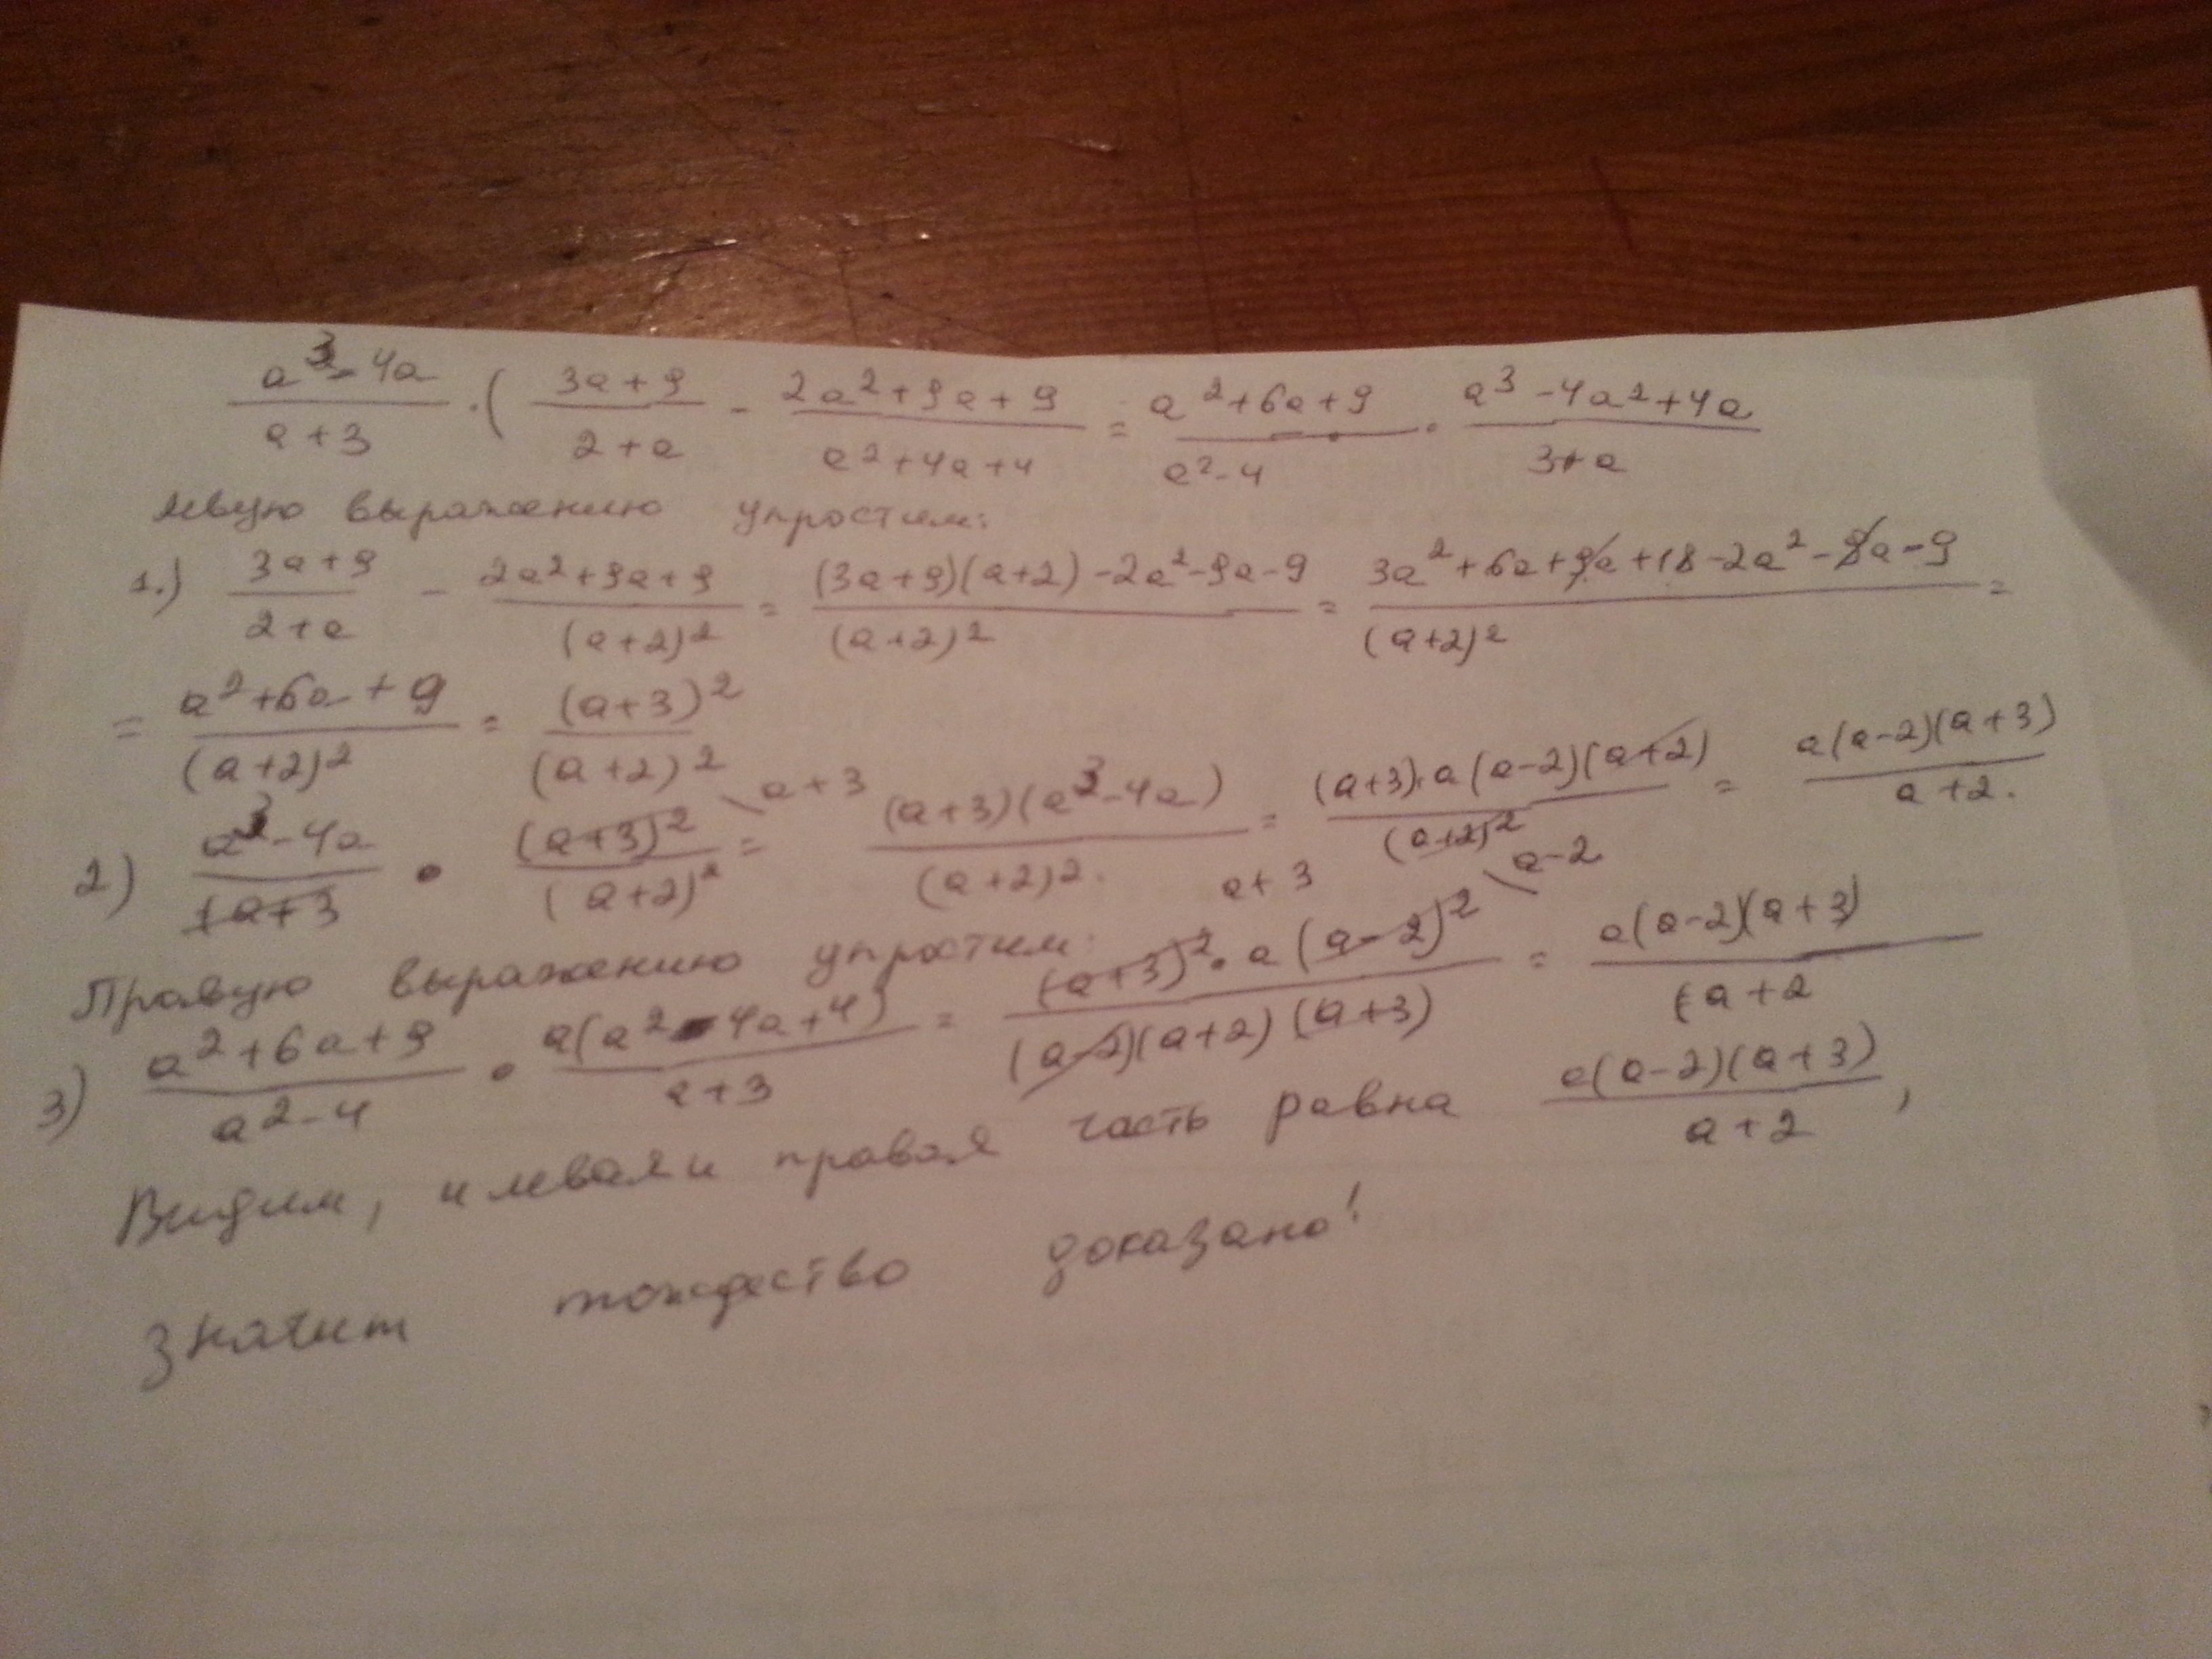 (a³-4a)/(a+3) · ( (3a+9)/(2+a) - (2a²+9a+9)/(a²+4a+4) = (a²+6a+9)/(a²-4) · (a³-4a²+4a)/(3+a)
Левую выражению упростим:
1.) (3a+9)/(2+a) - (2a²+9a+9)/(a+2)² = ((3a+9)(a+2)-2a²-9a-9)/(a+2)² = (3a²+6a+9a+18-2a²-9a-9)/(a+2)² =
= (a²+6a+9)/(a+2)² = (a+3)²/(a+2)²
2) (a³-4a)/(a+3 · (a+3)² \a+3/(a+2)² = (a+3)(a³-4a)/(a+2)². = (a+3)·a(a-2)(a+2)/(a+2)² = a(a-2)(a+3)/a+2.
Правую выражению упростим:
3) (a²+6a+9)/(a²-4) · a(a²-4a+4)/(a+3) = a+3 (a+3)²·a(a-2)² \a-2/(a-2)(a+2)(a+3) = a(a-2)(a+3)/(a+2
Видим, и левая и правая часть равна a(a-2)(a+3)/a+2,
значит тождество доказано!